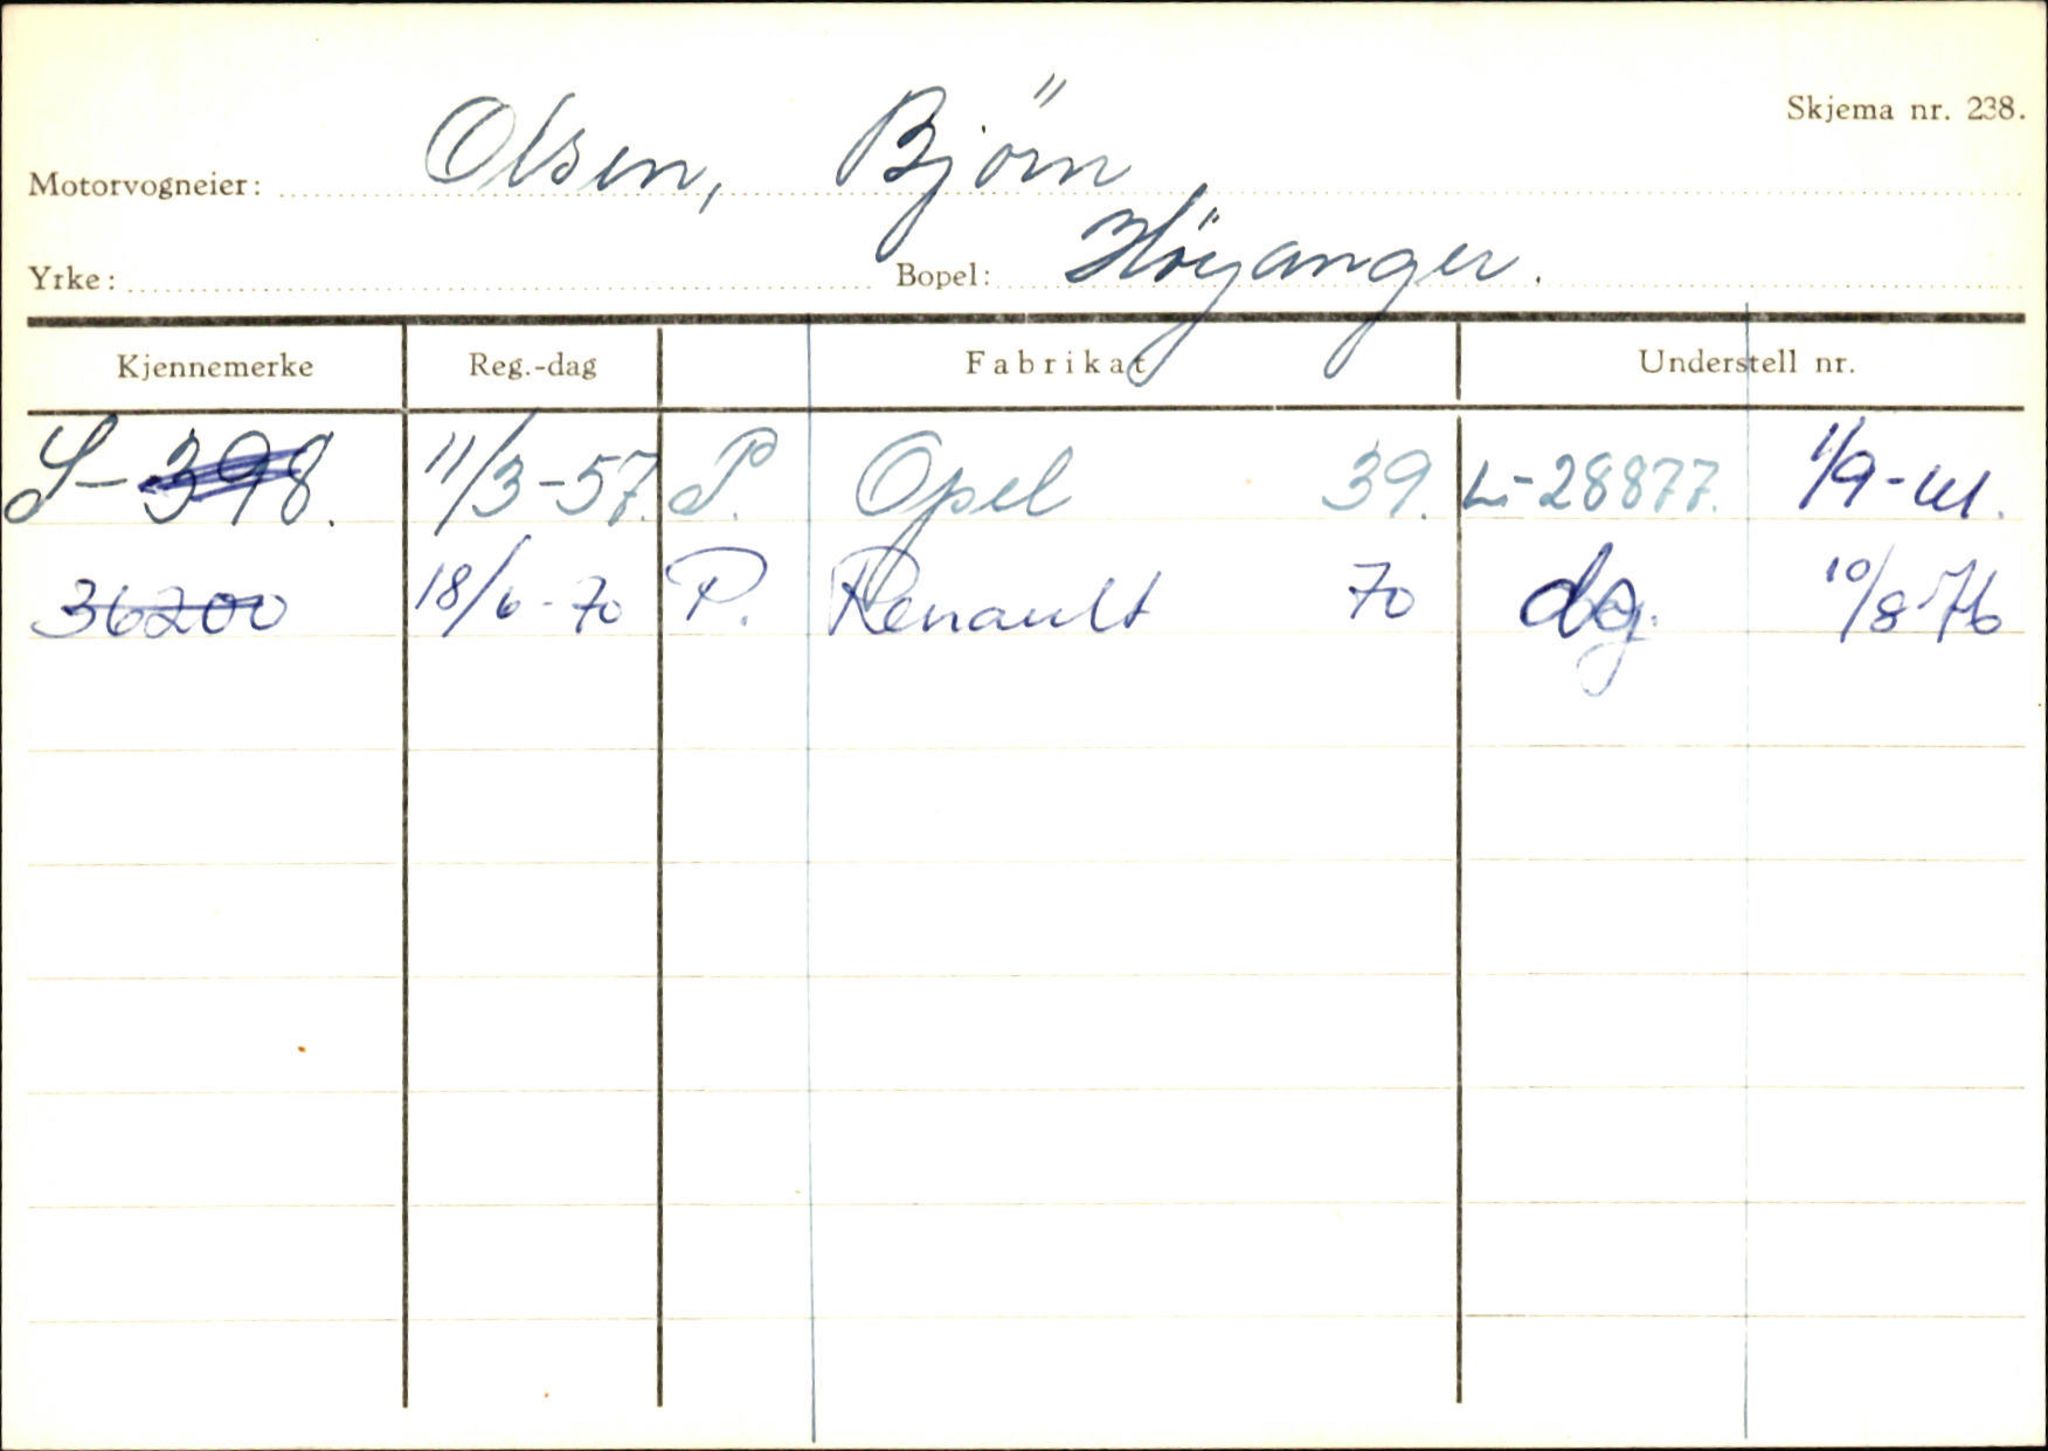 Skjema nr. 238.
Motorvogneier: Olsen, Björn
Yrke: Bopel: Höyanger.
Kjennemerke Reg.-dag Fabrikat Understell nr.
S-398. 11/3-57. P. Opel 39. L-28877. 1/9-61.
36200 18/6-70 P. Renault 70 dg. 10/8-76